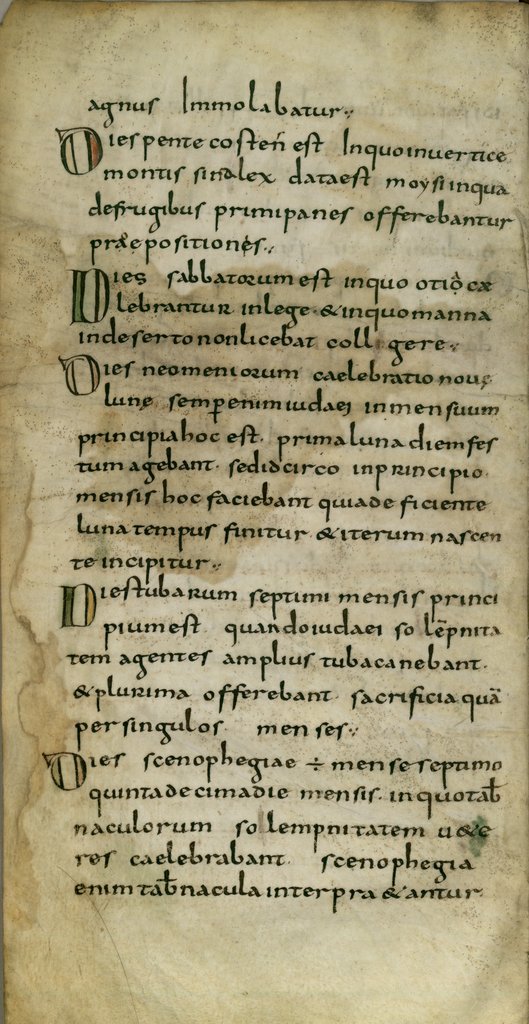 agnus Immolabatur.,
Dies pentecosteñ est Inquo inuertice
montis sina lex data est moysi inqua
defrugibus primi panes offerebantur
præpositiones.,
Dies sabbatorum est inquo otio cæ
lebrantur inlege · & inquo manna
indeserto nonlicebat colligere.,
Dies neomeniorum caelebratio nouę
lunę semp̄ enim iudaei inmensuum
principia hoc est · prima luna diem fes
tum agebant · sed idcirco inprincipio ·
mensis hoc faciebant quia deficiente
luna tempus finitur · & iterum nascen
te incipitur.,
Dies tubarum septimi mensis princi
pium est · quando iudaei solēpnita
tem agentes amplius tuba canebant ·
& plurima offerebant · sacrificia quā
per singulos menses.,
Dies scenophegiae ÷ mense septimo
quinta decima die mensis · inquo tab̄
naculorum solempnitatem u&e
res caelebrabant · scenophegia
enim tab̄nacula interpra&antur ·